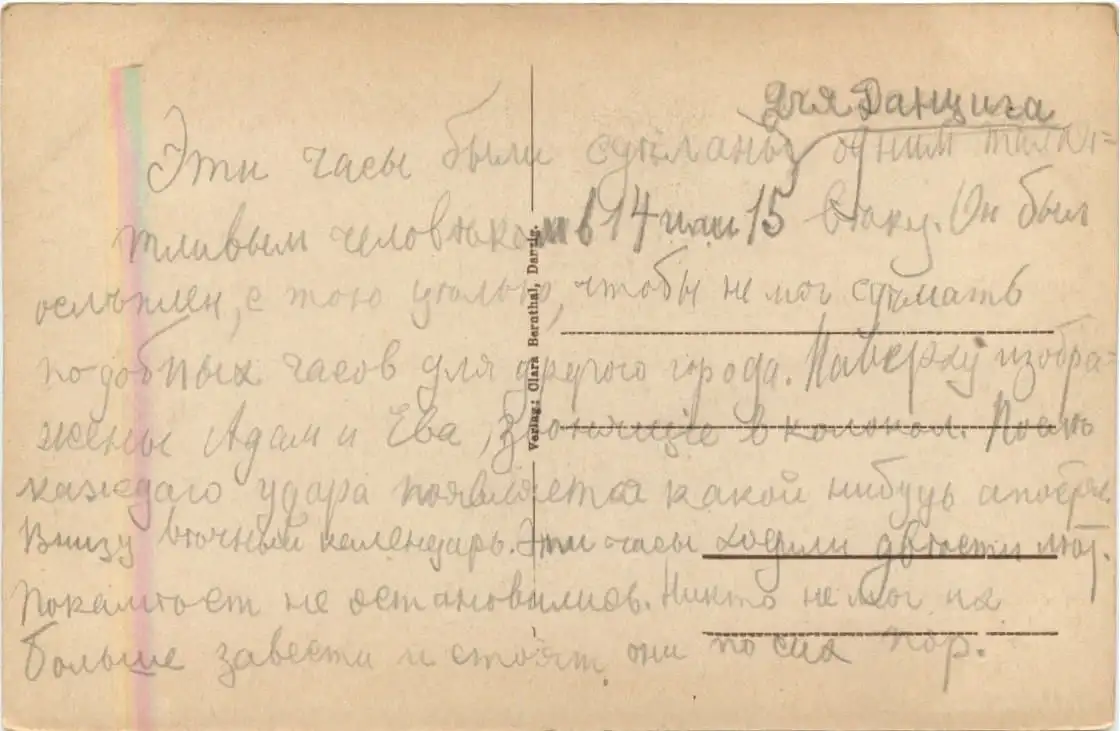 для Данцига
Эти часы были сдѣланы одним талан-
тливым человѣкомъ в 14 или 15 вѣку. Он был
ослѣплен, с тою цѣлью, чтобы не мог сдѣлать
подобных часов для другого города. Наверху изобра-
жены Адам и Ева, звонящіе в колокол. Послѣ
каждаго удара появляется какой нибудь апостол
Внизу вѣчный календарь. Эти часы ходили двѣсти лѣт.
Пока не остановились. Никто не мог их
больше завести и стоят они по сих пор.
Verlag: Clara Bernthal, Danzig.